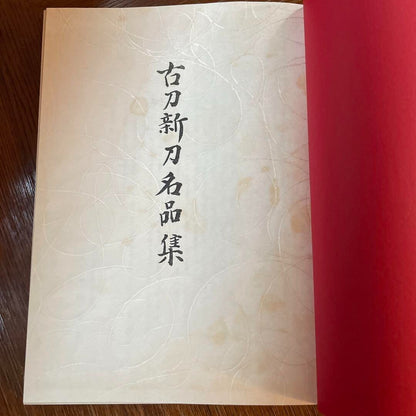 古刀新刀名品集